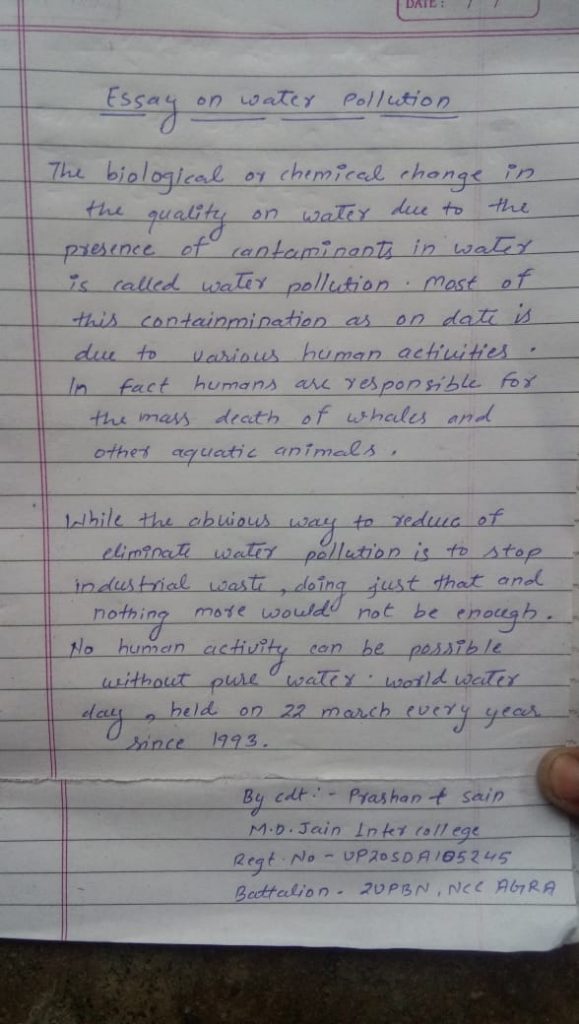 DATE : / /
Essay on water Pollution
The biological or chemical change in
the quality on water due to the
presence of cantaminants in water
is called water pollution. Most of
this containmination as on date is
due to various human activities.
In fact humans are responsible for
the mass death of whales and
other aquatic animals.
While the obvious way to reduce of
eliminate water pollution is to stop
industrial waste, doing just that and
nothing more would not be enough.
No human activity can be possible
without pure water. world water
day, held on 22 march every year
since 1993.
By cdt :- Prashant sain
M.D. Jain Inter college
Regt. No - UP20SDA105245
Battalion - 2UPBN, NCC AGRA